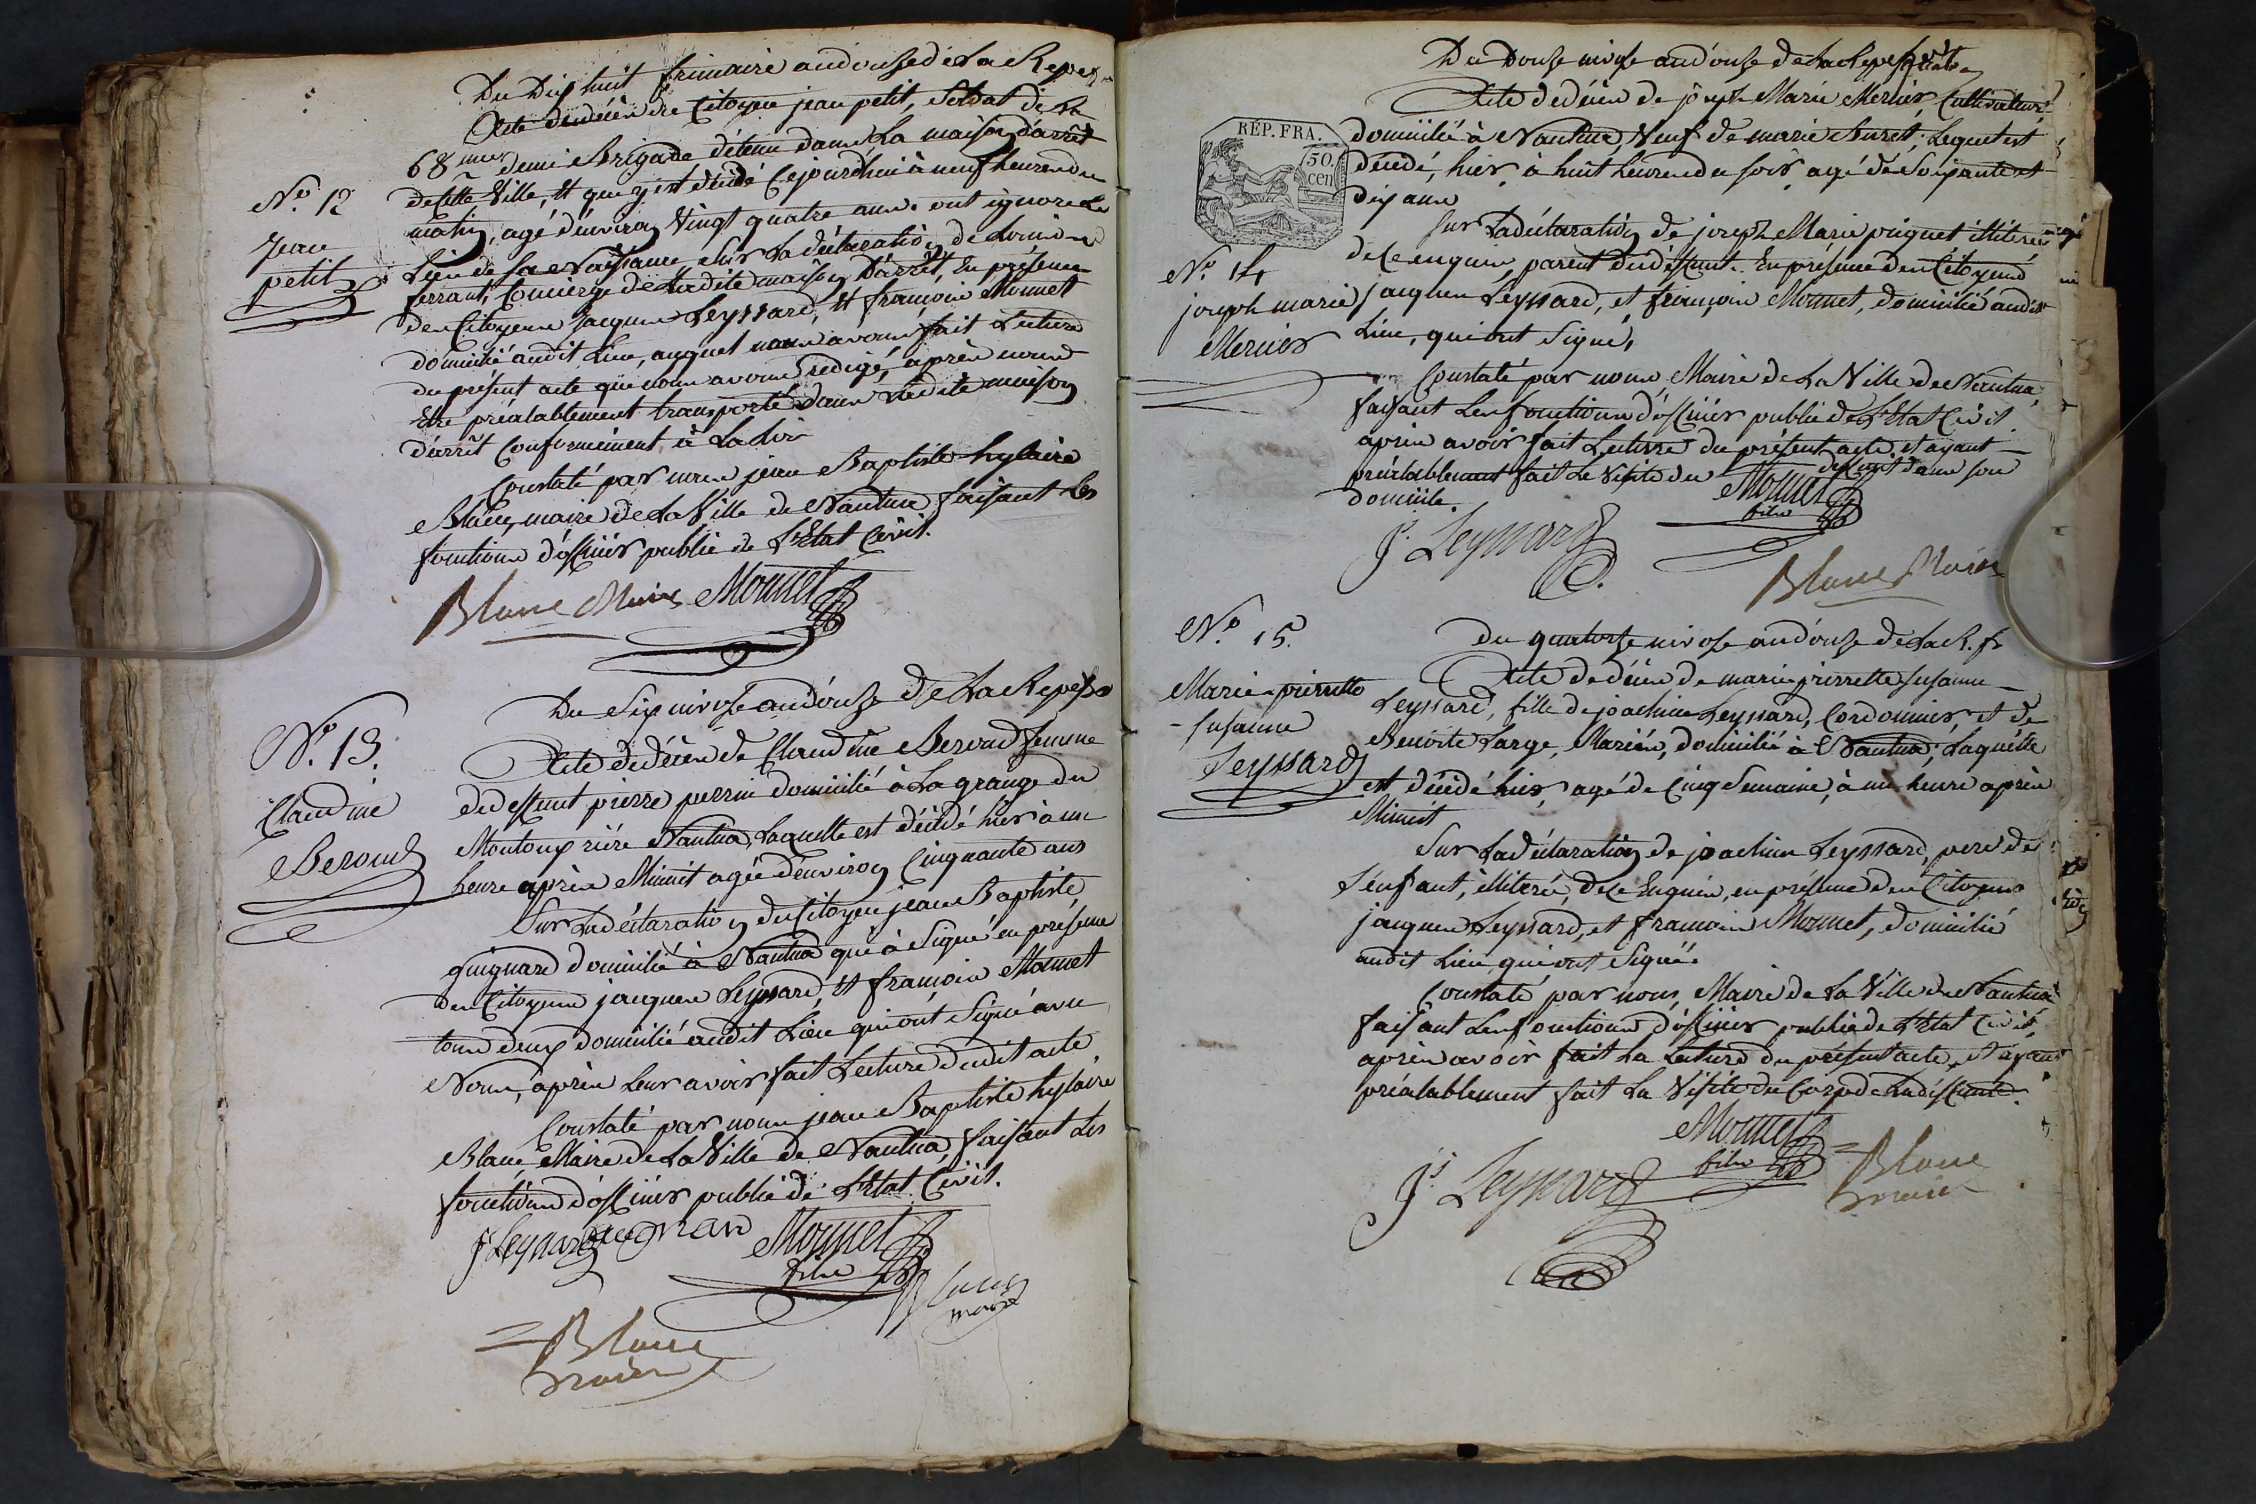 Du Dix huit frimaire an douze de la Rep.
Acte de décès du Citoyen jean petit, Soldat de la
68.me demi Brigade détenu dans la maison d'arrêt
de cette Ville, et qui y est décédé Cejourdhui à neuf heures du
matin, agé d'environ Vingt quatre ans. ont ignore Le
Lieu de sa Naissance sur la déclaration de
ferrant, Concierge de Ladite maison d'arrêt, En présence
des Citoyens Jacques Leyssard, et françois Monnet
domicilié audit Lieu, auquel nous avons fait Lecture
du présent acte que nous avons redigé, après nous
Etre préalablement transporté dans Ladite maison
d'arrêt Conformément à La Loi
Constaté par nous jean Baptiste hylaire
Blanc, maire de La Ville de Nantua faisant les
fonctions d'officier public de L'Etat Civil.
Blanc Maire Monnet
N.o 12
Jean
petit
Du Six nivose an douze de La Rep.
Acte de décès de Claudine Beroud femme
de deffunt pierre perrin domicilié à La grange du
Montoux rière Nantua, Laquelle est décédé hier à une
heure après Minuit agée d'environ Cinquante ans
Sur La déclaration du Citoyen jean Baptiste
guignard domicilié à Nantua qui à Signé en presence
des Citoyens jacques Leyssard, et françois Monnet
tous deux domicilié audit Lieu qui ont Signé avec
Nous, après Leur avoir fait Lecture dudit acte
Constaté par nous jean Baptiste hylaire
Blanc, Maire de La Ville de Nantua faisant Les
fonctions d'officier public de L'Etat Civil.
J. Leyssard guignard Monnet
fils
Blanc
maire
= Blanc
maire
N.o 13.
Claudine
Beroud
Du Douze nivose an douze de la Rep.
Acte de décès de joseph Marie Mercier, Cultivateur
domicilié à Nantua, Veuf de marie Buret, Lequel est
décédé, hier, à huit heures du soir, agé de Soixante et
dix ans
Sur La déclaration de joseph Marie piquet illiteré
de ce enquis, parent du déffunt. En présence des Citoyens
jacques Leyssard, et françois Monnet, domicilié audit
Lieu, qui ont Signé,
Constaté par nous Maire de La Ville de Nantua
faisant Les fonctions d'officier public de L'Etat Civil.
après avoir fait Lecture du présent acte, et ayant
préalablement fait La Visite du deffunt dans son
domicile.
Monnet
fils
J. Leyssard
Blanc Maire
REP. FRA.
50.
cen
N.o 14
joseph marie
Mercier
Du quatorze nivose an douze de La R. fr
Acte de décès de marie pierrette susanne
Leyssard, fille de joachim Leyssard, Cordonnier, et de
Benoite Large, Mariés, domicilié à Nantua, Laquelle
est décédé hier, agé de Cinq Semaine, à une heure après
Minuit
Sur La déclaration de joachim Leyssard, pere de
L'enfant, illiteré, de ce Enquis, en présence des Citoyens
jacques Leyssard, et françois Monnet, domicilié
audit Lieu, qui ont Signé.
Constaté par nous, Maire de La Ville de Nantua
faisant Les fonctions d'officier public de L'Etat Civil,
après avoir fait La Lecture du présent acte, et ayant
préalablement fait La Visite du Corps de La déffunte.
Monnet
fils
J. Leyssard
= Blanc
maire
N.o 15.
Marie-pierrette
- susanne
Leyssard